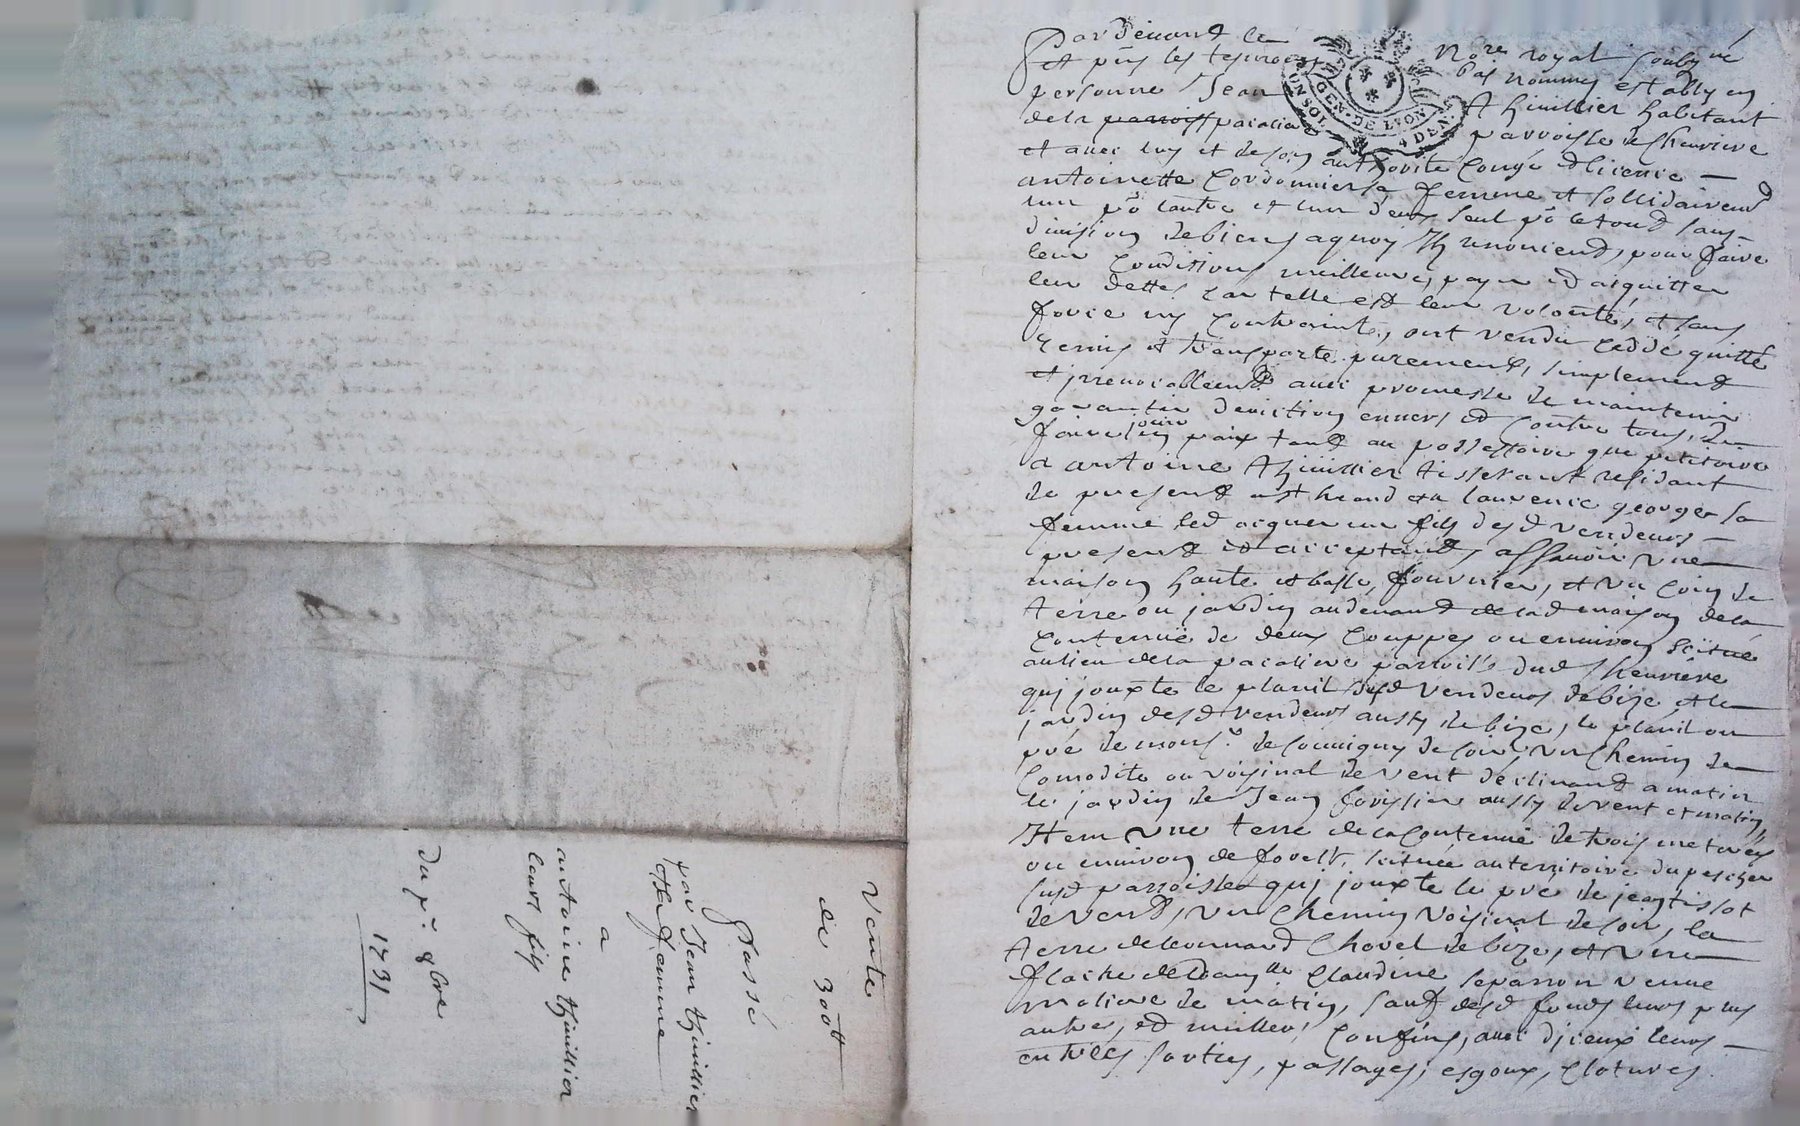 Pardevant le no.re royal soubsigné
et p̃ns les tesmoins bas nommes estably en
personne Jean Thiuillier habitant
de la parroiss pacaliere parroisse de Cheuriere
et auec luy et de son authorité congé et licence
antoinette Cordonnier sa femme et sollidairemt
lun pô lautre et lun deux seul pô le tout sans
diuision de biens aquoy Ils renoncient, pour faire
leur Conditions meilleure, payer et aiquitter
leur dettes car telle est leur volonté, et sans
force ny contrainte, ont vendu ceddé quitté
remis et transporté purement, simplement
et irreuocablement auec promesse de maintenir
garantir deuiction enuers et contre tous, de
faire jouir en paix tant au possessoire que petitoire
a antoine Thiuillier tisserant residant
de present a st heand et a laurence george sa
femme led acquereur fils desd vendeurs
present et acceptants assauoir une
maison haute et basse, fournier, et vn coin de
terre ou jardin audeuant de lad maison de la
contenue de deux couppes ou enuiron scitue
au lieu de la pacaliere parroisse dud Cheuriere
qui jouxte le planil desd vendeurs de bize, et le
jardin desd vendeurs aussy de bize, le planil ou
pré de monsr. de soir, vn chemin de
Comodite ou voisinal de vent declinant a matin
le jardin de Jean aussy de vent et matin,
Item vne terre de la contenue de trois meterés
ou enuiron de scituée au territoire du
susd parroisse qui jouxte le pré de jean tissot
de vent, vn chemin voisinal de soir, la
terre de leonnard Chouel de bize, et vne
flache de damlle Claudine veuue
de matin, sauf desd fonds leurs plus
autres, et meilleurs confins, auec diceux leurs
entrées sorties, passages, esgoux, clotures
Vente
de 300tt
Passé
par Jean thiuillier
et sa femme
a
antoine thiuillier
leurs fils
du pr. 8bre
1731
GEN. DE LYON
4 DEN.